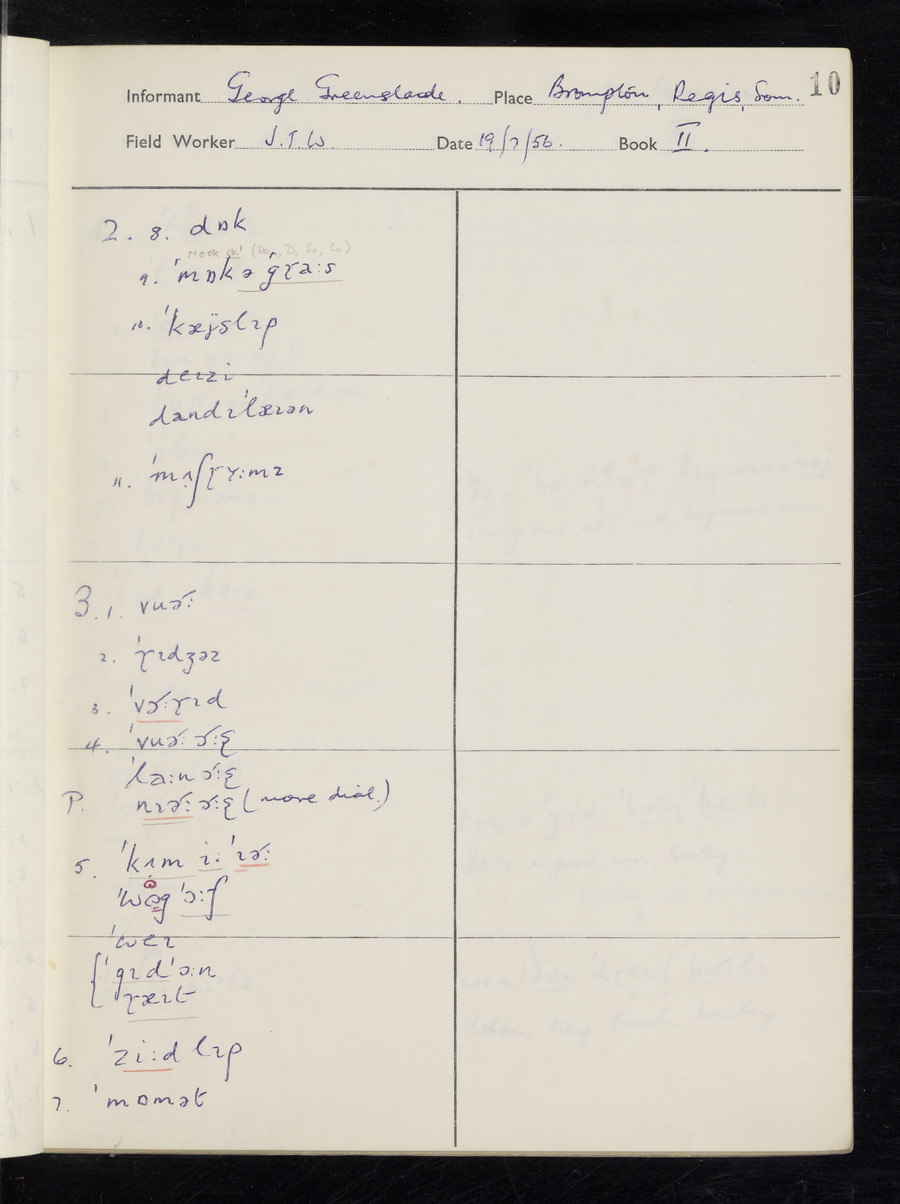 Informant George Greenslade. Place Brompton, Regis, Som. 10
Field Worker J.T.W. Date 19/7/56. Book II.
2. 8. dɒk
Mock sb.¹ (Do, D, So, Co)
9. ˈmɒk ə gɽaːs
10. ˈkæÿslɪp
deɪzi
dandɪˈlæɪən
11. ˈmʌʃɽʏːmz
3. 1. vuɚː
2. ˈɽɪdʒəz
3. ˈvɚːɽɪd
4. ˈvuɚː ɚːʂ
ˈlaːn ɚːʂ
P. nɪɚː ɚːʂ (more dial.)
5. ˈkʌm iː ˈɪɚː
ˈwəg ˈɔːf
ˈweɪ
ˈgɪd ˈɔːn
ɽæɪt
6. ˈziːdlɪp
7. ˈmɒmət